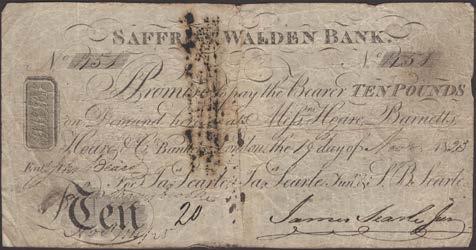 SAFFRON WALDEN BANK.
No 451 No 451
I Promise to pay the Bearer TEN POUNDS
on Demand here or at Messrs Hoare, Barnetts,
Hoare, & Co Bankers London the day of 1823
For Jas Searle, Jas Searle Junr & S. B. Searle.
£ Ten 20 James Searle Junr